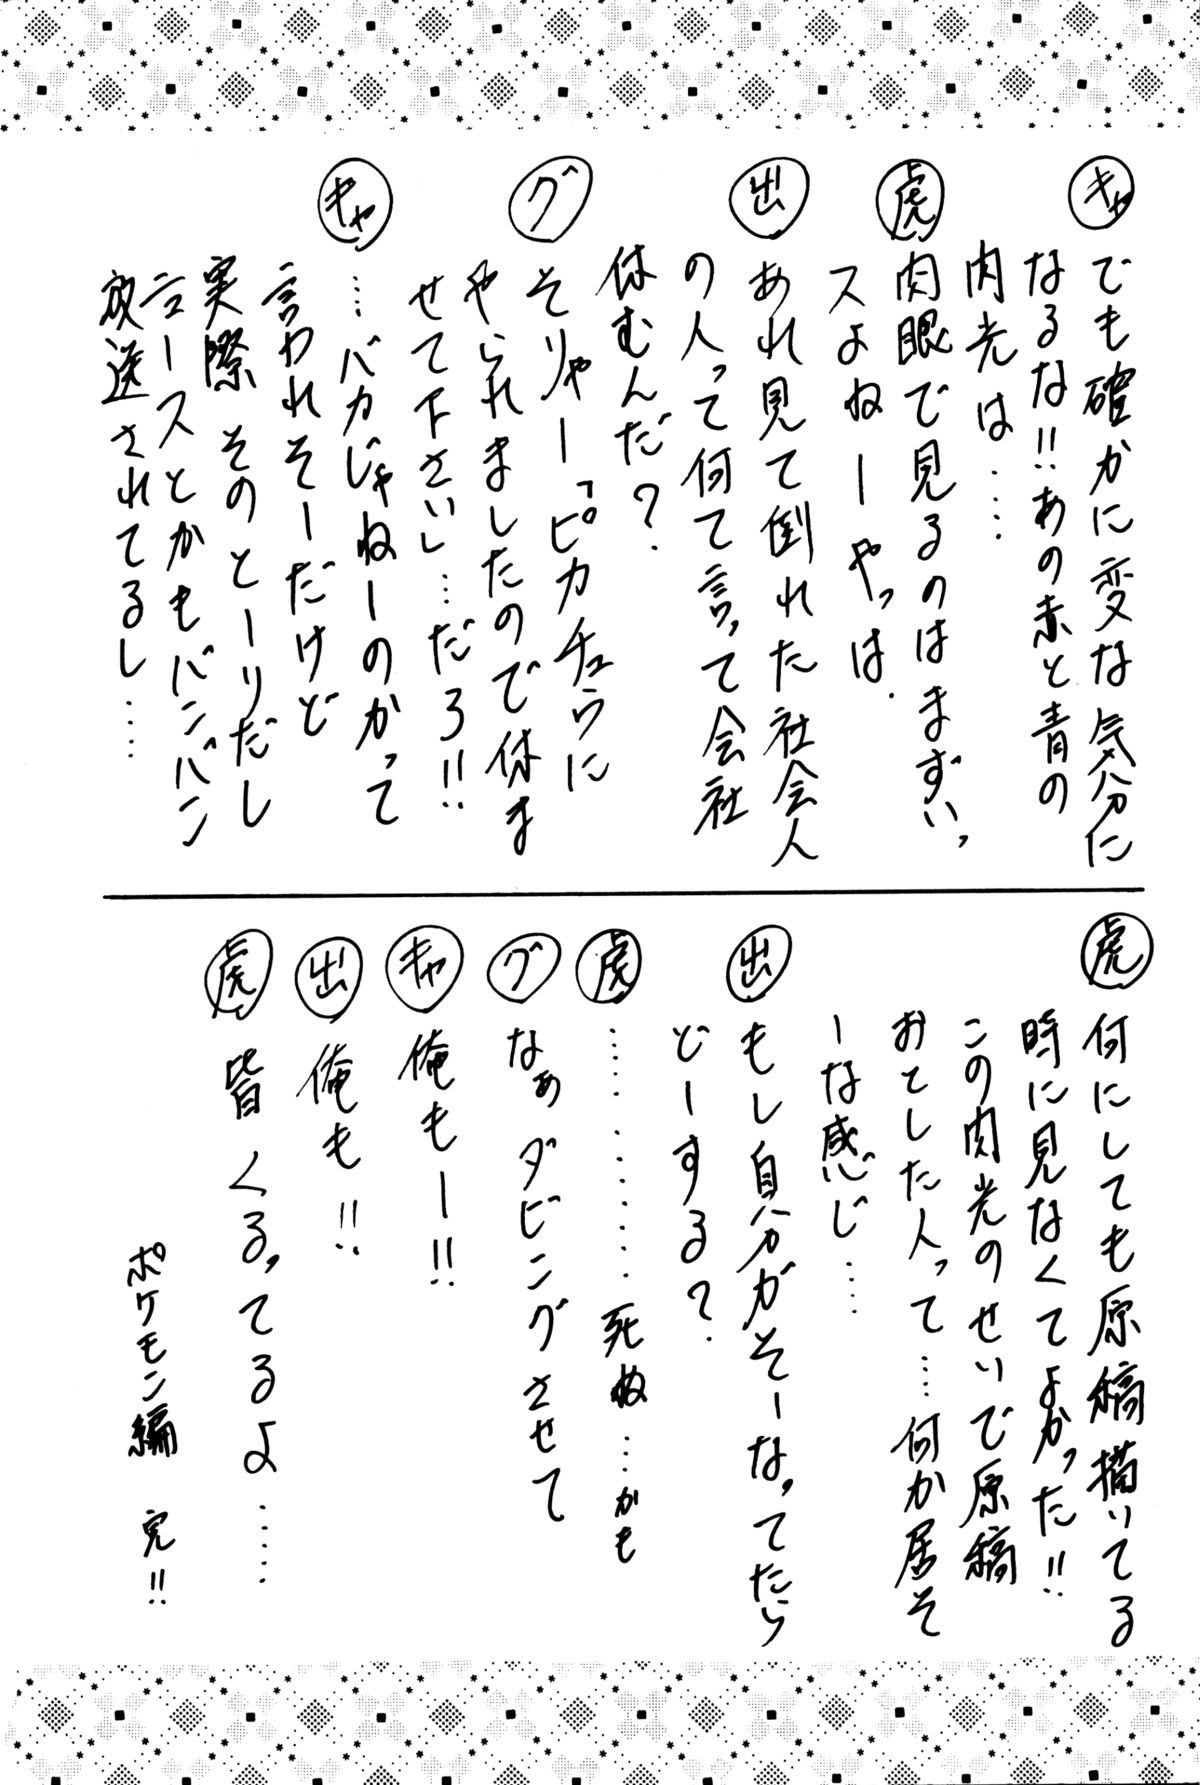 キャ でも確かに変な気分に
なるな!!あの赤と青の
肉光は‥‥
虎 肉眼で見るのはまずいっ
スよねーやっは.
出 あれ見て倒れた社会人
の人って何て言って会社
休むんだ?
グ そりゃー「ピカチュウに
やられましたので休ま
せて下さい」…だろ!!
キャ …バカじゃねーのかって
言われそーだけど
実際 そのとーりだし
ニュースとかもバンバン
放送されてるし‥‥
虎 何にしても原稿描いてる
時に見なくてよかった!!
この肉光のせいで原稿
おとした人って…何か居そ
ーな感じ‥‥
出 もし自分がそーなってたら
どーする?
虎 ‥‥‥‥‥死ぬ…かも
グ なぁダビングさせて
キャ 俺もー!!
出 俺も!!
虎 皆 くるってるよ‥‥
ポケモン編 完!!